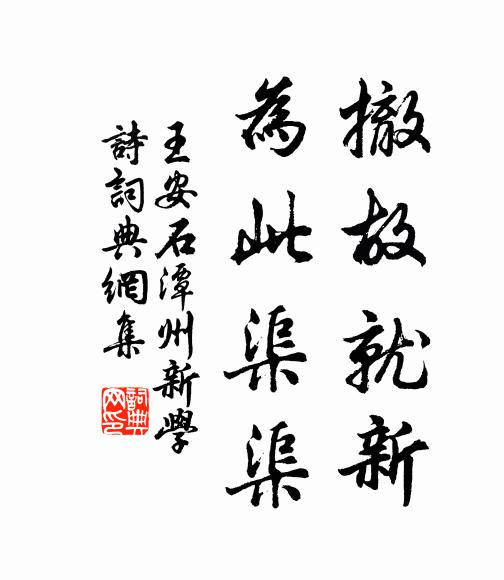 撤故就新
為此渠渠
王安石潭州新學
詩詞典網集
詞典網印